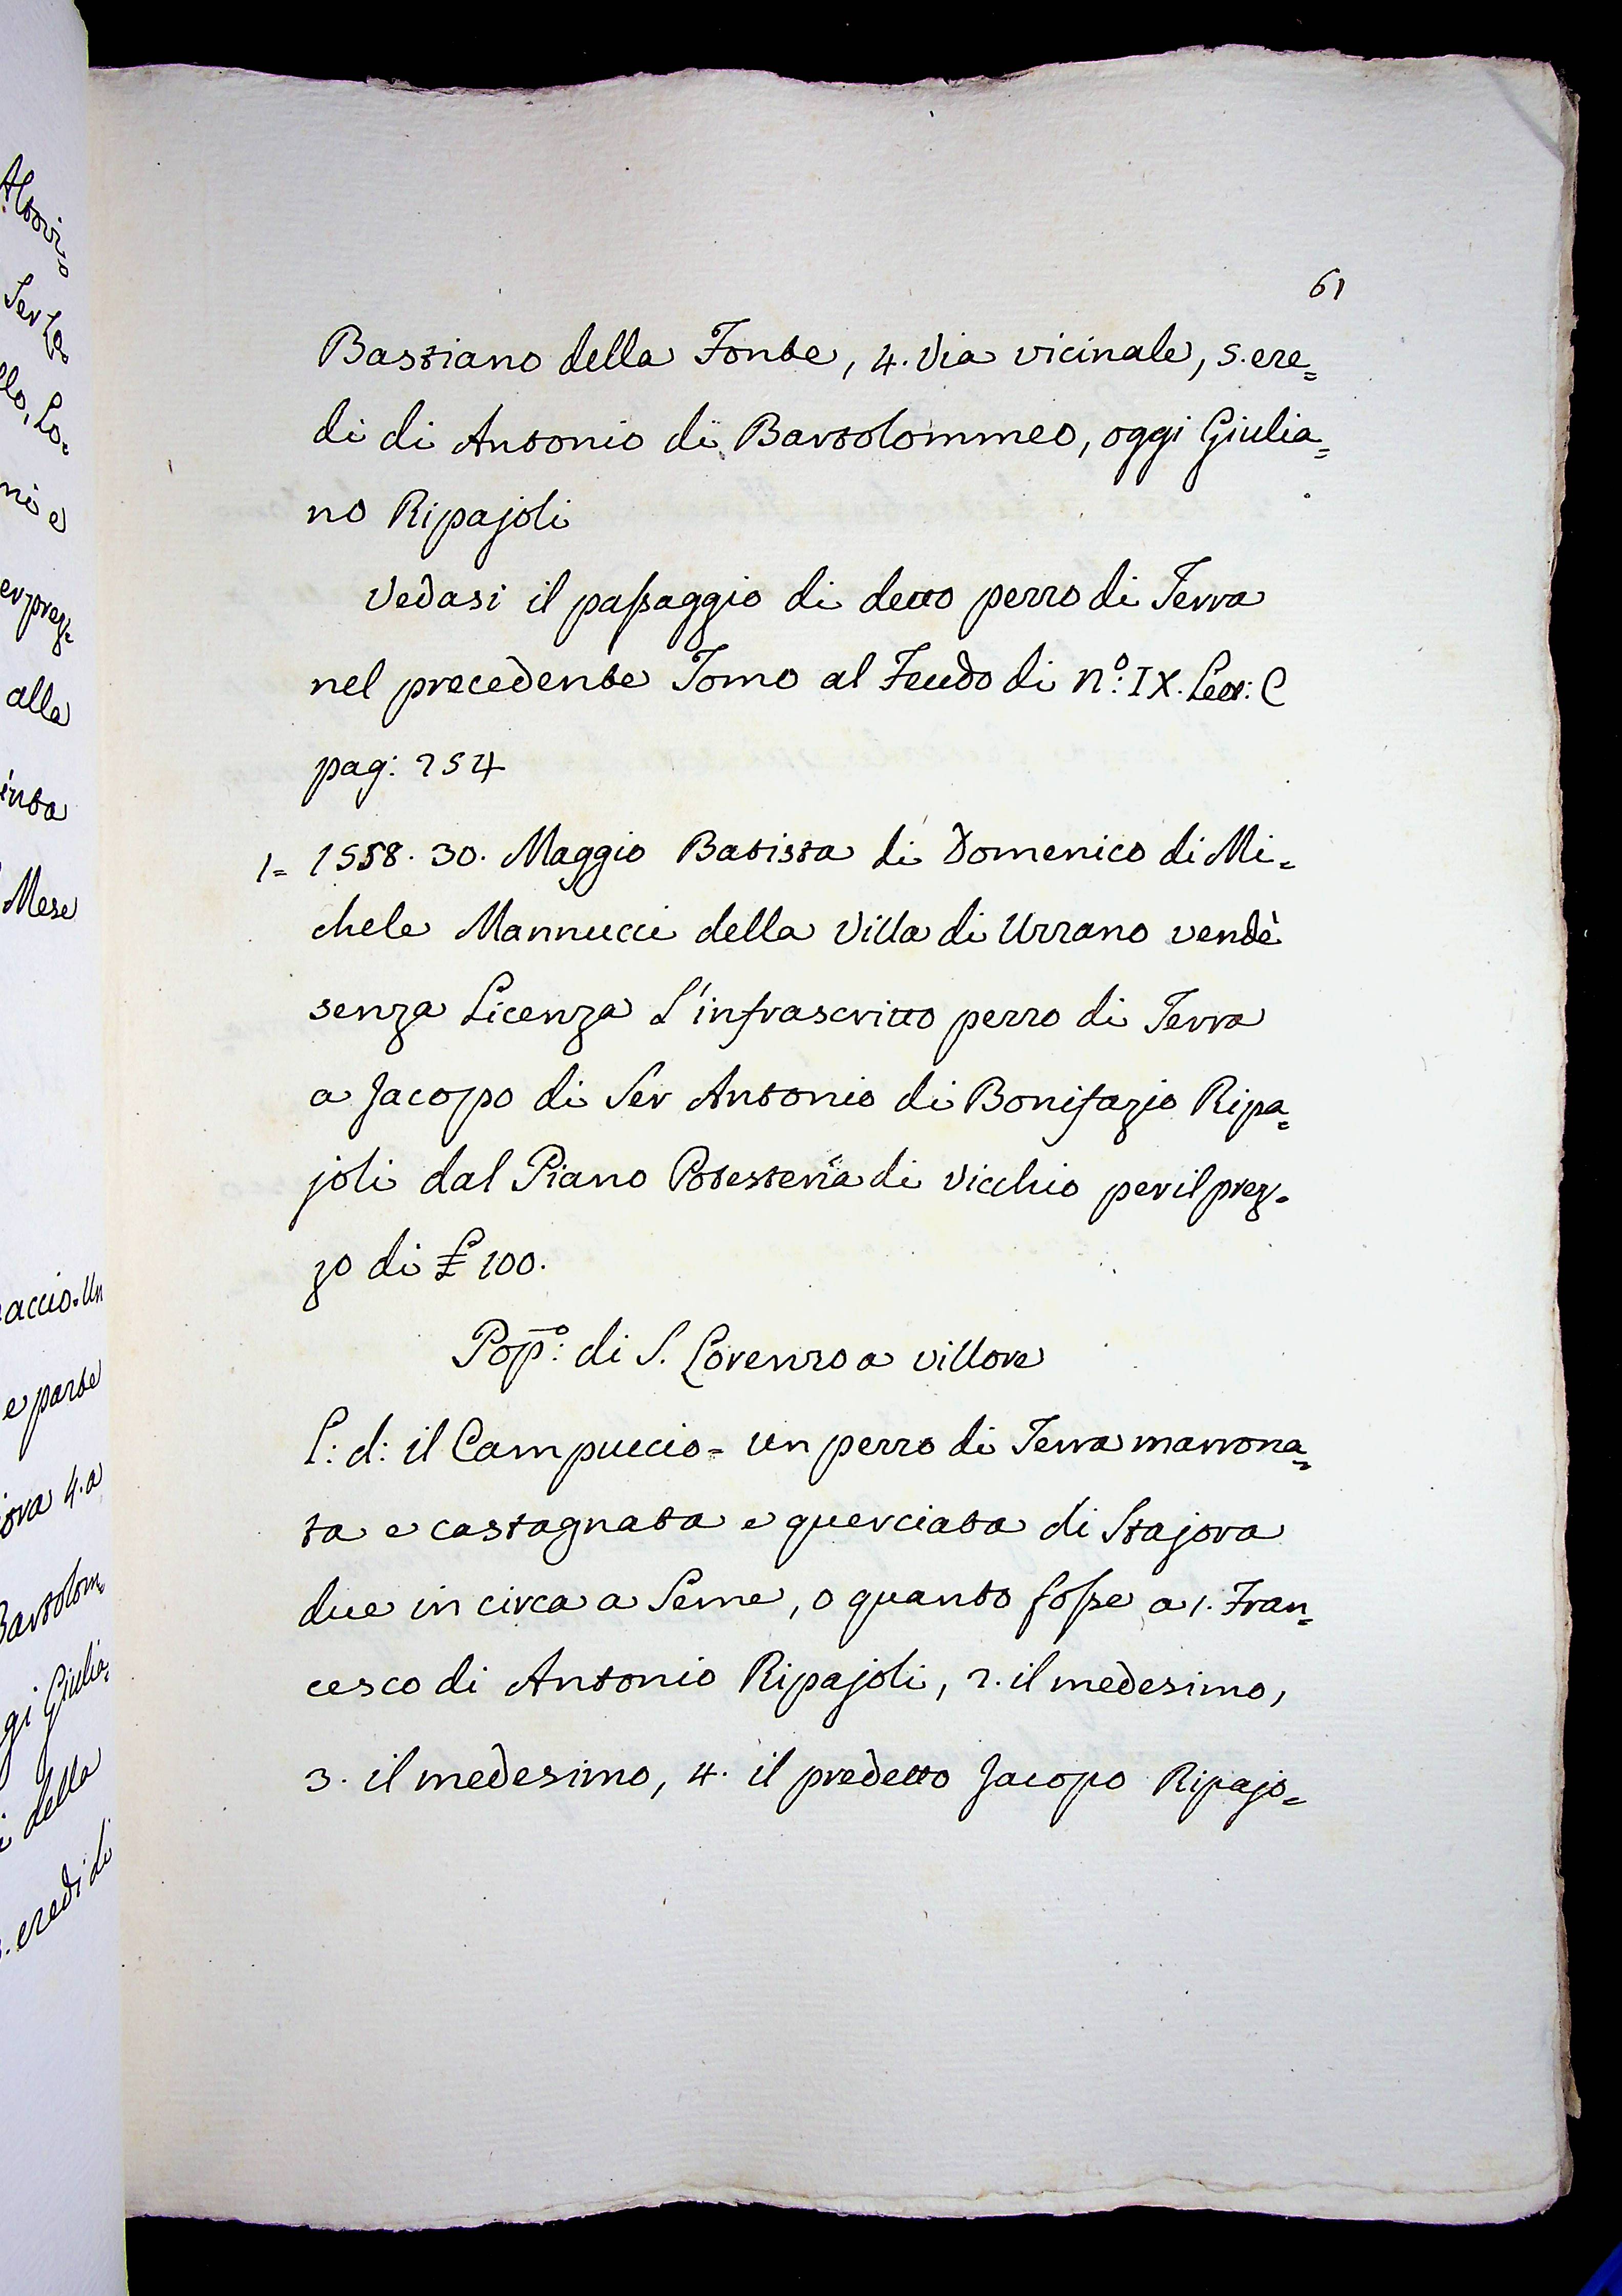 61
Bastiano della Fonte, 4. Via vicinale, 5. ere=
di di Antonio di Bartolommeo, oggi Giulia=
no Ripajoli
Vedasi il passaggio di detto pezzo di Terra
nel precedente Tomo al Feudo di N.º IX. Lett: C
pag: 254
1= 1558. 30. Maggio Batista di Domenico di Mi=
chele Mannucci della Villa di Uzzano vendè
senza Licenza L'infrascritto pezzo di Terra
a Jacopo di Ser Antonio di Bonifazio Ripa=
joli dal Piano Potesteria di Vicchio per il prez=
zo di £ 100.
Pop.º: di S. Lorenzo a Villore
L: d: il Campuccio = Un pezzo di Terra marrona=
ta e castagnata e querciata di Stajora
due in circa a Seme, o quanto fosse a 1. Fran=
cesco di Antonio Ripajoli, 2. il medesimo,
3. il medesimo, 4. il predetto Jacopo Ripajo=
alla
Mese
e parte
della
eredi di